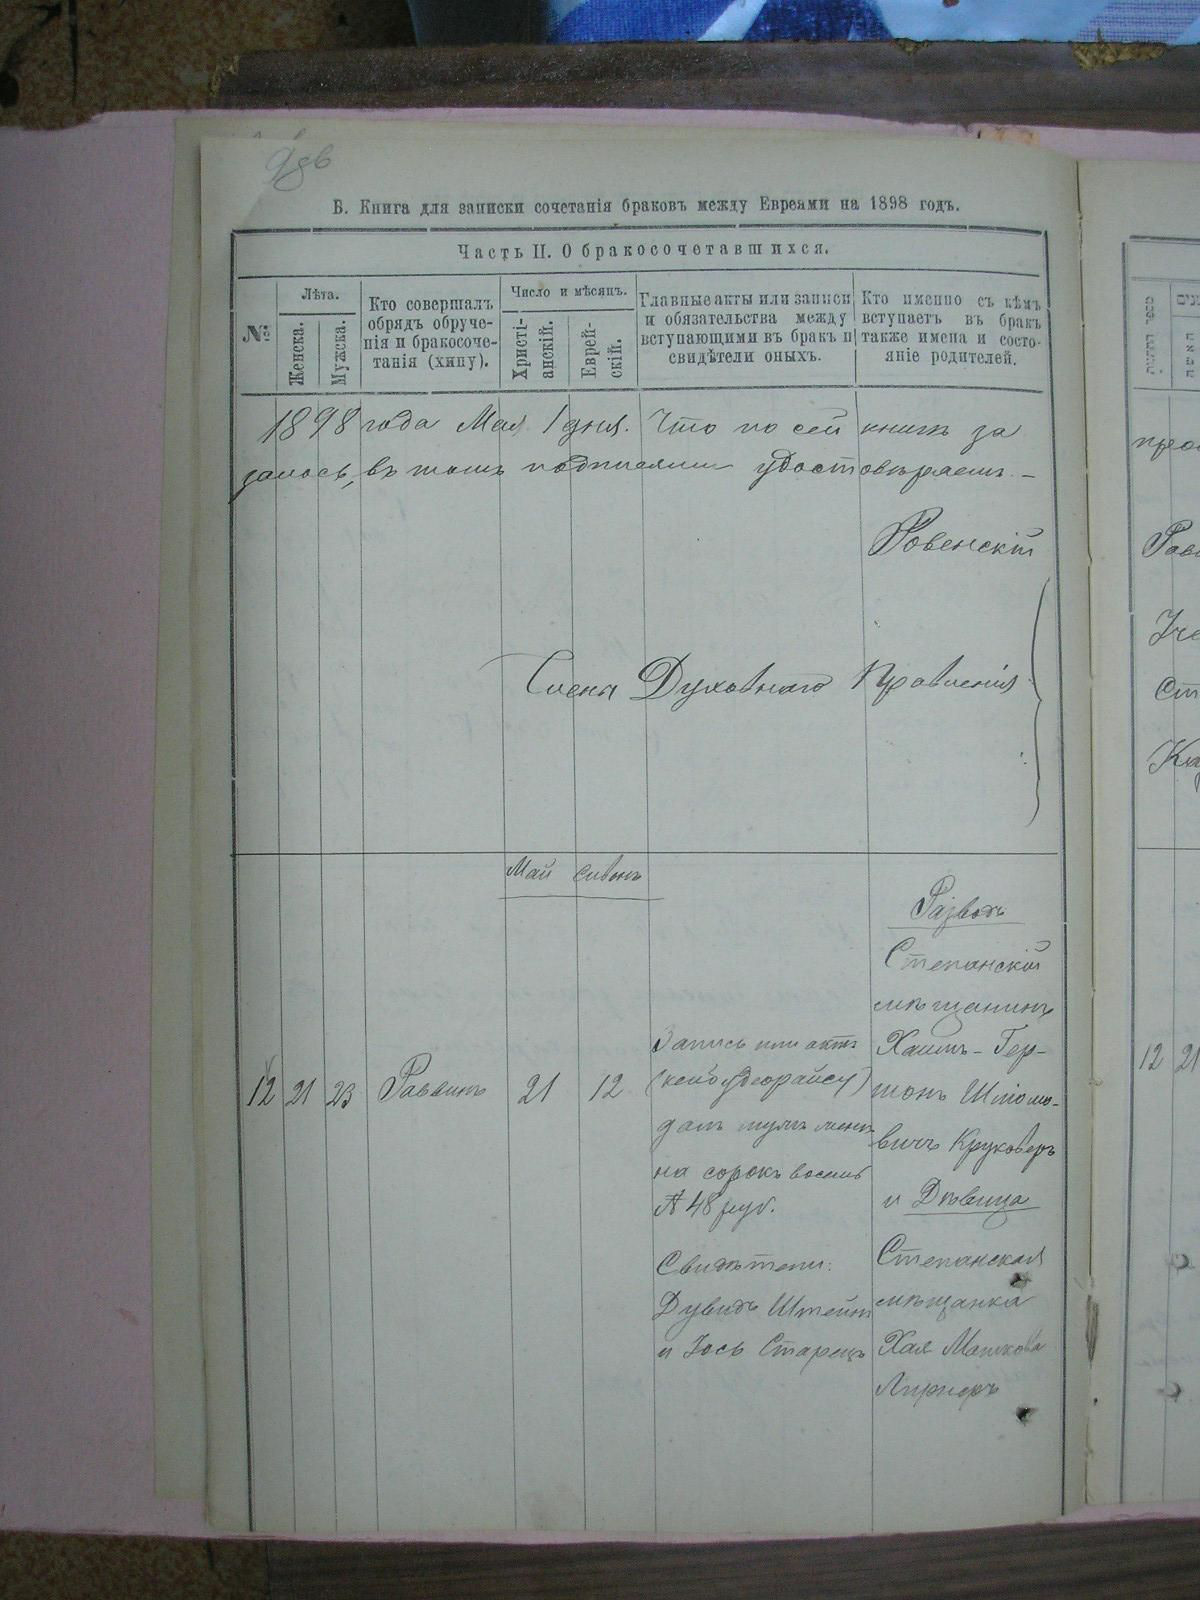 Б. Книга для записки сочетанія браковъ между Евреями на 1898 годъ.
Часть II. О бракосочетавшихся.
№
Лѣта.
Женска.
Мужска.
Кто совершалъ
обрядъ обруче-
нія и бракосоче-
танія (хипу).
Число и мѣсяцъ.
Христі-
анскій.
Еврей-
скій.
Главные акты или записи
и обязательства между
вступающими въ бракъ и
свидѣтели оныхъ.
Кто именно съ кѣмъ
вступаетъ въ бракъ
также имена и состо-
яніе родителей.
1898 года Мая 1 дня. Что по сей книгѣ
въ томъ подписями удостовѣряемъ. –
Ровенскій
Члена Духовнаго Правленія
Май Сивонъ
12 21 23 Раввинъ 21 12
Запись или актъ
далъ мужъ женѣ
на сорокъ восемь
48 руб.
Свидѣтели:
Дувидъ Штейнъ
и Іось Старецъ
Разводъ
Степанскій
мѣщанинъ
Хаимъ-Гер-
шонъ Шліомо-
вичъ Круковеръ
и Дѣвица
Степанская
мѣщанка
Хая Машкова
Лирнеръ
12 21